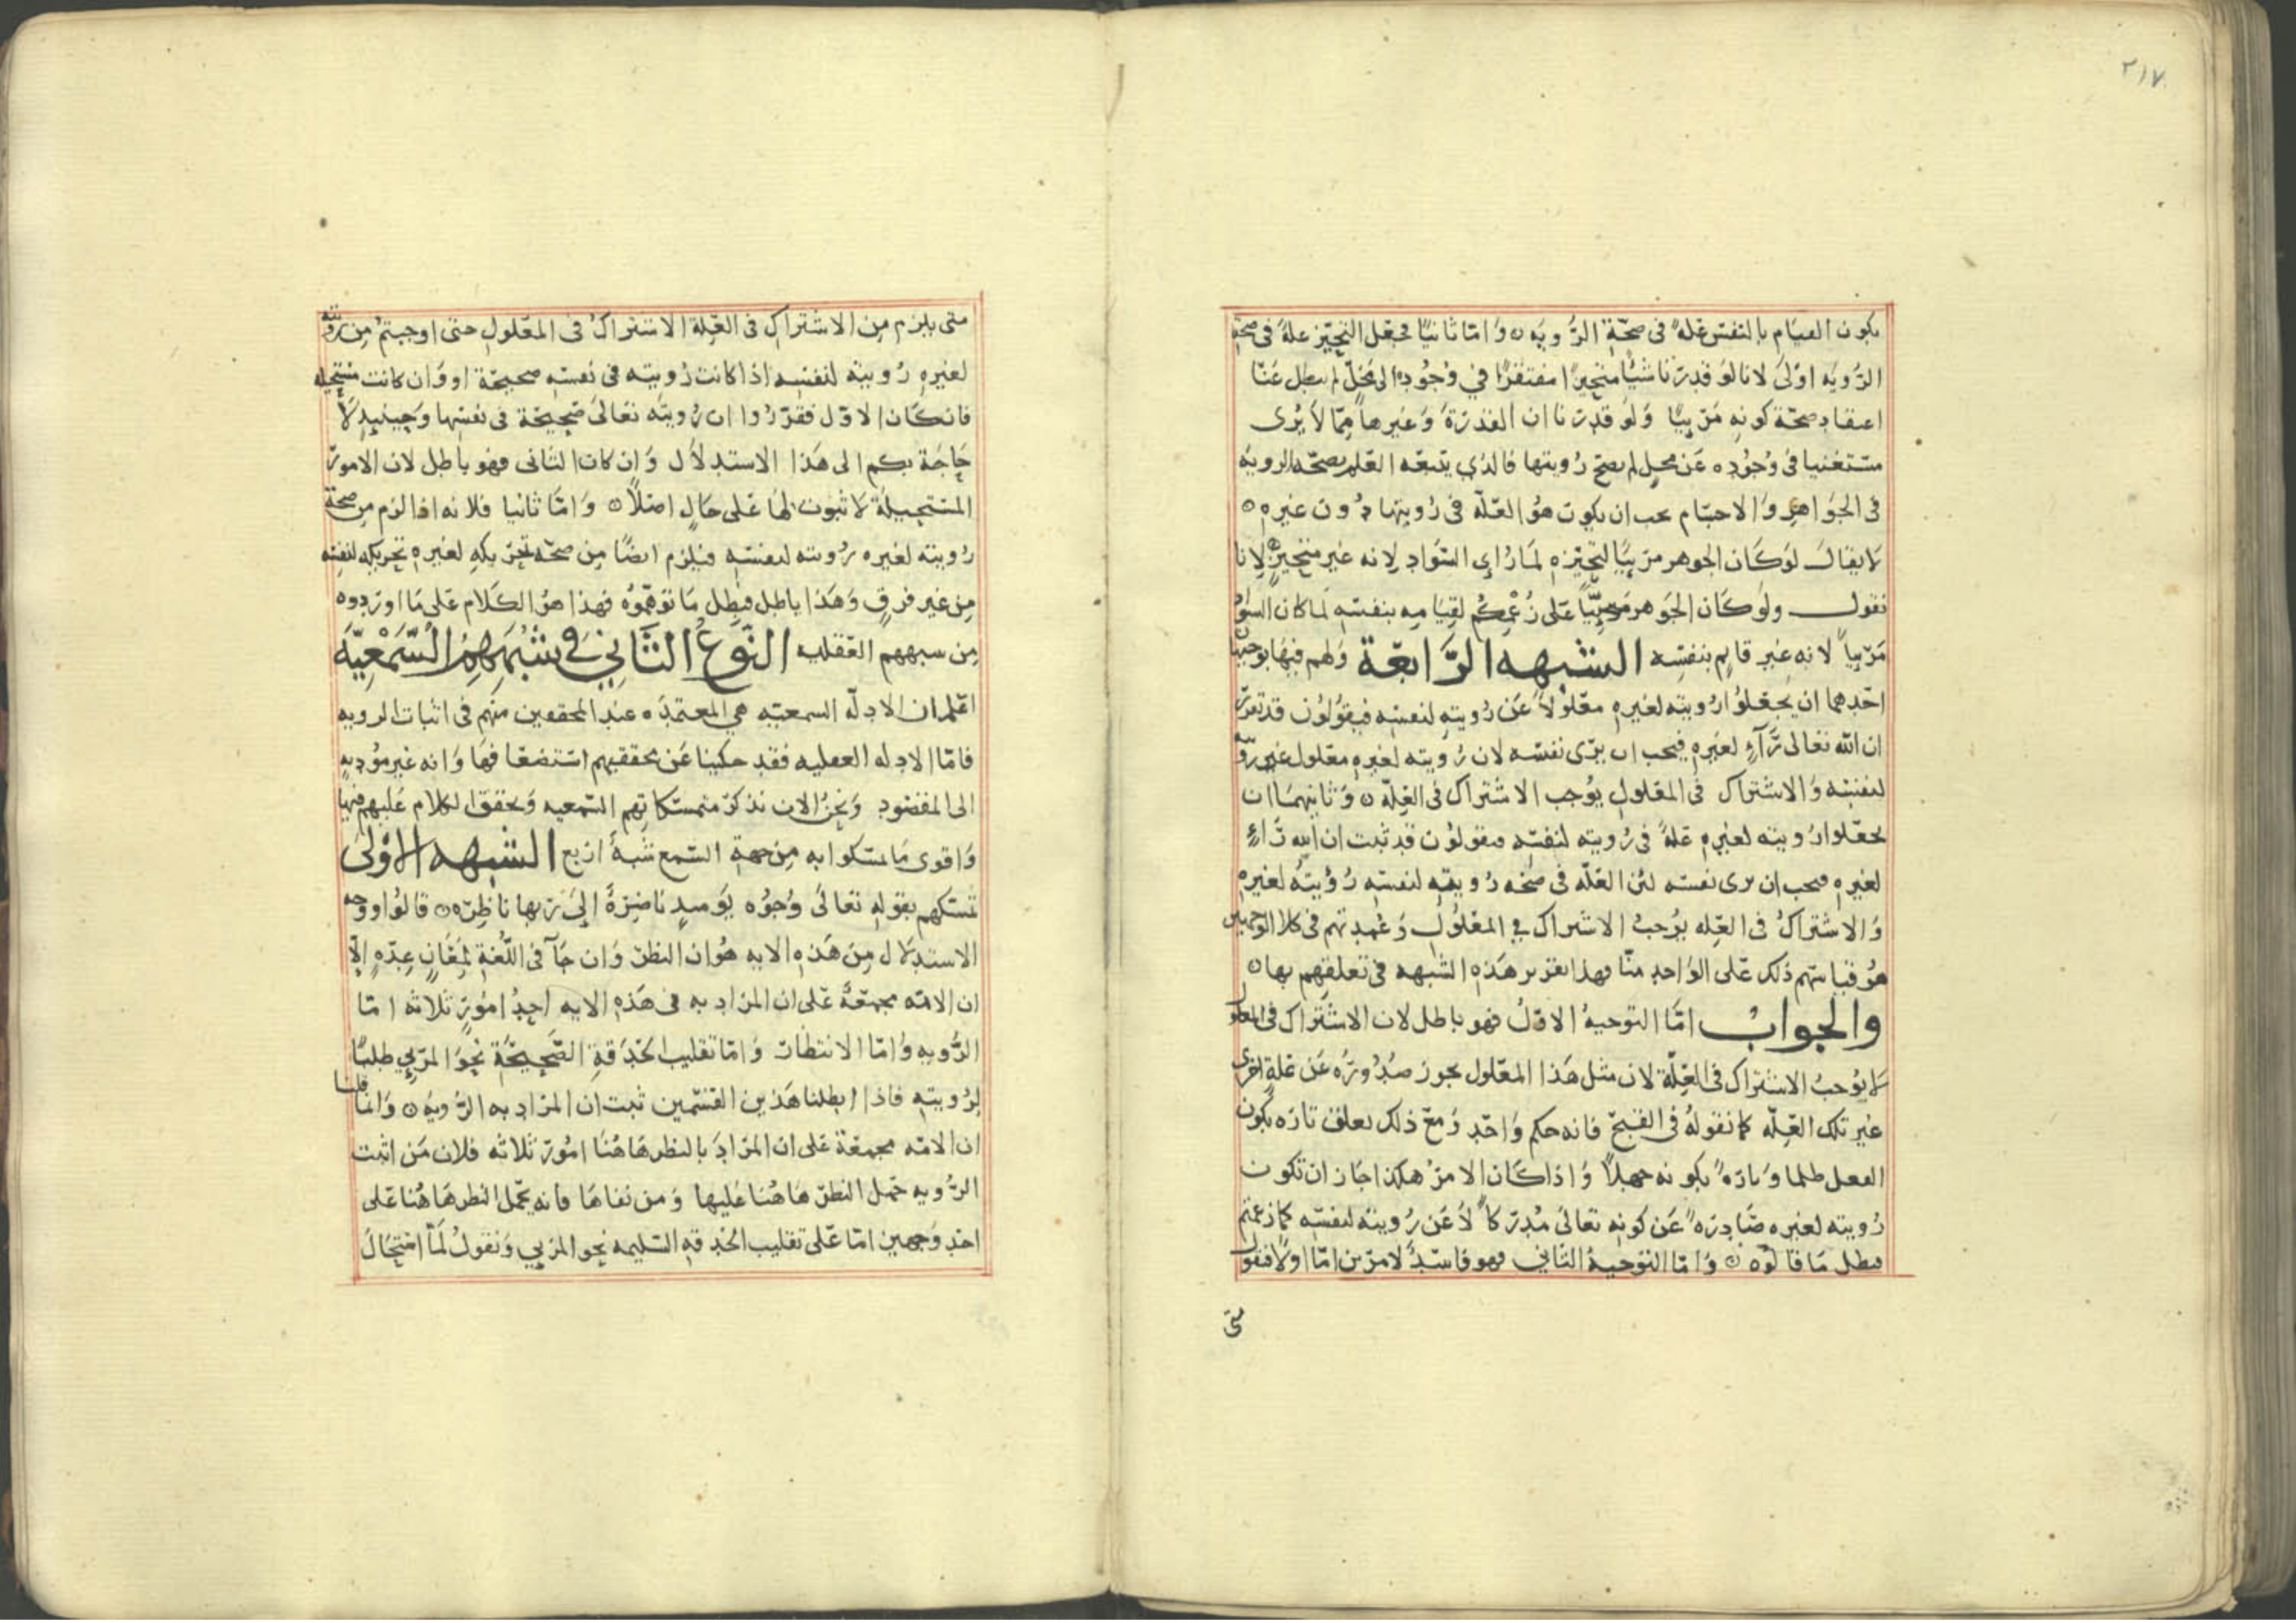 ٢١٧
يكون القيام بالنفس علة في صحة الرؤية ٥ وَامّا ثانيًا فجعل التحيّز علةً في صحة
الرُّويه اوْلى لانا لوَ قدرنا شيًا متحيزًا مفتقرًا في وُجُوده الى محَلٍّ لم يبطل عَنّا
اعتقاد صحّة كونه مَرئيًا وَلوَ قدرنا ان القدرَةَ وَغيرها مِمّا لاَ يُرى
مستغنيا في وُجُوده عَن محل لم يصح رُويتها فالذي يتبعه العلم بصحّه الرويه
في الجوَاهرِ وَالاجسَام يجب ان يكون هوُ العلّة في رُويتها دُون غيره ٥
لا يقال لوَكَان الجوهر مرئيًا لتحيّزه لمَا رُاي السّوَاد لانه غير متحيزٍ لانا
نقول ولوَ كَان الجَوهر مَرئيًّا عَلى زُعْمِكُم لقيَامِه بنفسه لَما كان السوَاد
مَرئياً لانه غير قايم بنفسِه الشبهه الرَّابعَة وَلهم فيهَا توجيهان
احَدهما ان يجعَلوُا رُويته لغيره معَلوُلاً عَن رُويته لنفسه فيقوُلوُن قد تقرّر
ان الله تعالى رَآءٍ لغيره فيجب ان يرَى نفسَه لان رُويته لغيره معَلول عن رويته
لنفسه وَالاشتراك في المعَلول يوُجب الاشتراك في العِلّه ٥ وَثانيهمَا ان
يجعَلوا رُويته لغيره علةً في رُويته لنفسه فيقولوُن قد ثبت ان الله رَاءٍ
لغيره فيجب ان يرى نفسه لئن العَلّه في صحّه رُويته لنفسه رُؤيتُه لغيره
وَالاشتراكُ في العِله يوُجبُ الاشراك في المعَلوُل وَعُمدتهم في كلا الوَجهين
هوُ قياسهم ذلك عَلى الوَاحد منّا فهذا تقرير هَذه الشبهه في تعلقهم بها ٥
والجواب امّا التوجيهُ الاوّلُ فهو باطل لان الاشتراك في المعلول
لا يوُجبُ الاشتراك في العِلّة لان مثل هَذا المعَلول يجوز صُدُورُه عَن علةٍ اخرى
غير تلك العِلّه كما نقولهُ في القبح فانه حكم وَاحَد وَمعَ ذلك يعلل تارَه بكون
الفعل ظلما وَتارَةً بكونه جهلاً وَاذا كَان الامرُ هكذا جَاز ان تكون
رُويته لغيره صَادرَةً عَن كونه تعَالى مُدركاً لاَ عَن رُويته لنفسه كما زعمتم
فبطل مَا قالوُه ٥ وَامّا التوجيهُ الثاني فهو فاسدٌ لامرَين امّا اولاً فنقول
متى
متى يلزم مِن الاشتراك في العِلة الاشتراكُ في المعَلول حتى اوجبتمُ مِن رويته
لغيره رُويته لنفسه اذا كانت رُويته في نفسه صحيحَة او وَان كانت مستحيله
فان كَان الاوّل فقرّرُوا ان رُويته تعَالىَ صَحِيحَة في نفسها وَحِينئِذٍ لاَ
حَاجَة بكم الى هَذا الاستدلاَل وَان كان الثاني فهو باطل لان الامورَ
المستحِيلة لا ثبوت لهَا عَلى حَالٍ اصَلاً ٥ وَامّا ثانيا فلانه اذا لزم مِن صحّة
رُويته لغيره رُويته لنفسه فيلزم ايضًا مِن صحّه تحريكهِ لغيره تحريكه لنفسه
مِن غير فرقٍ وَهَذا باطل فبطل مَا توَهّموُه فهذا هوُ الكَلام عَلى مَا اورَدوه
مِن شبههم العَقليه النّوعُ الثَّاني في شُبَهِهِمُ السَّمْعِيّة
اعَلم ان الادلّه السمعيّه هي المعتمدَه عند المحققين منهم في اثبات الرويه
فامّا الادله العقليه فقد حكينا عَن محققيهم استضعَافهَا وَانه غير مُؤديهٍ
الى المقصُود وَنحنُ الان نذكرُ متمسكاتهم السّمعيه وَنحقق الكلام عَليهم فيها
وَاقوى مَا تمسكوا به مِن جهة السّمع شبهٌ اربع الشبهه الاوْلى
تمسكهم بقوله تعالَى وُجُوه يَوميذٍ ناضِرَةٌ إلىَ رَبها ناظِرَه ٥ قالوُا ووجه
الاستدلال مِن هَذه الايه هوُ ان النظر وَان جآَ في اللّغة لمِعَانٍ عِدّهٍ إلاّ
ان الامّه مجمعَةٌ عَلى ان المرَاد به في هَذه الايه احدُ امُورٍ ثلاثه امّا
الرُّويه وَامّا الانتظار وَامّا تقليب الحَدَقة الصَّحِيحَة نحوَ المرئي طلبًا
لرُويته فاذا ابطلنا هَذين القسمين ثبت ان المرَاد به الرُّويه ٥ وَانمَا قلنا
ان الامّه مجمعَة عَلى ان المرَادَ بالنظر هَاهُنَا امُورَ ثلاثه فلان مَن اثبت
الرُّويه حَمل النظرَ هَاهُنا عَليها وَمن نفاهَا فانه يحمَل النظر هَا هُنا عَلى
احَدِ وَجهين امّا عَلى تقليب الحَدقه السّليمه نحو المرئي وَنقولُ لَمّا اسْتحَالَ